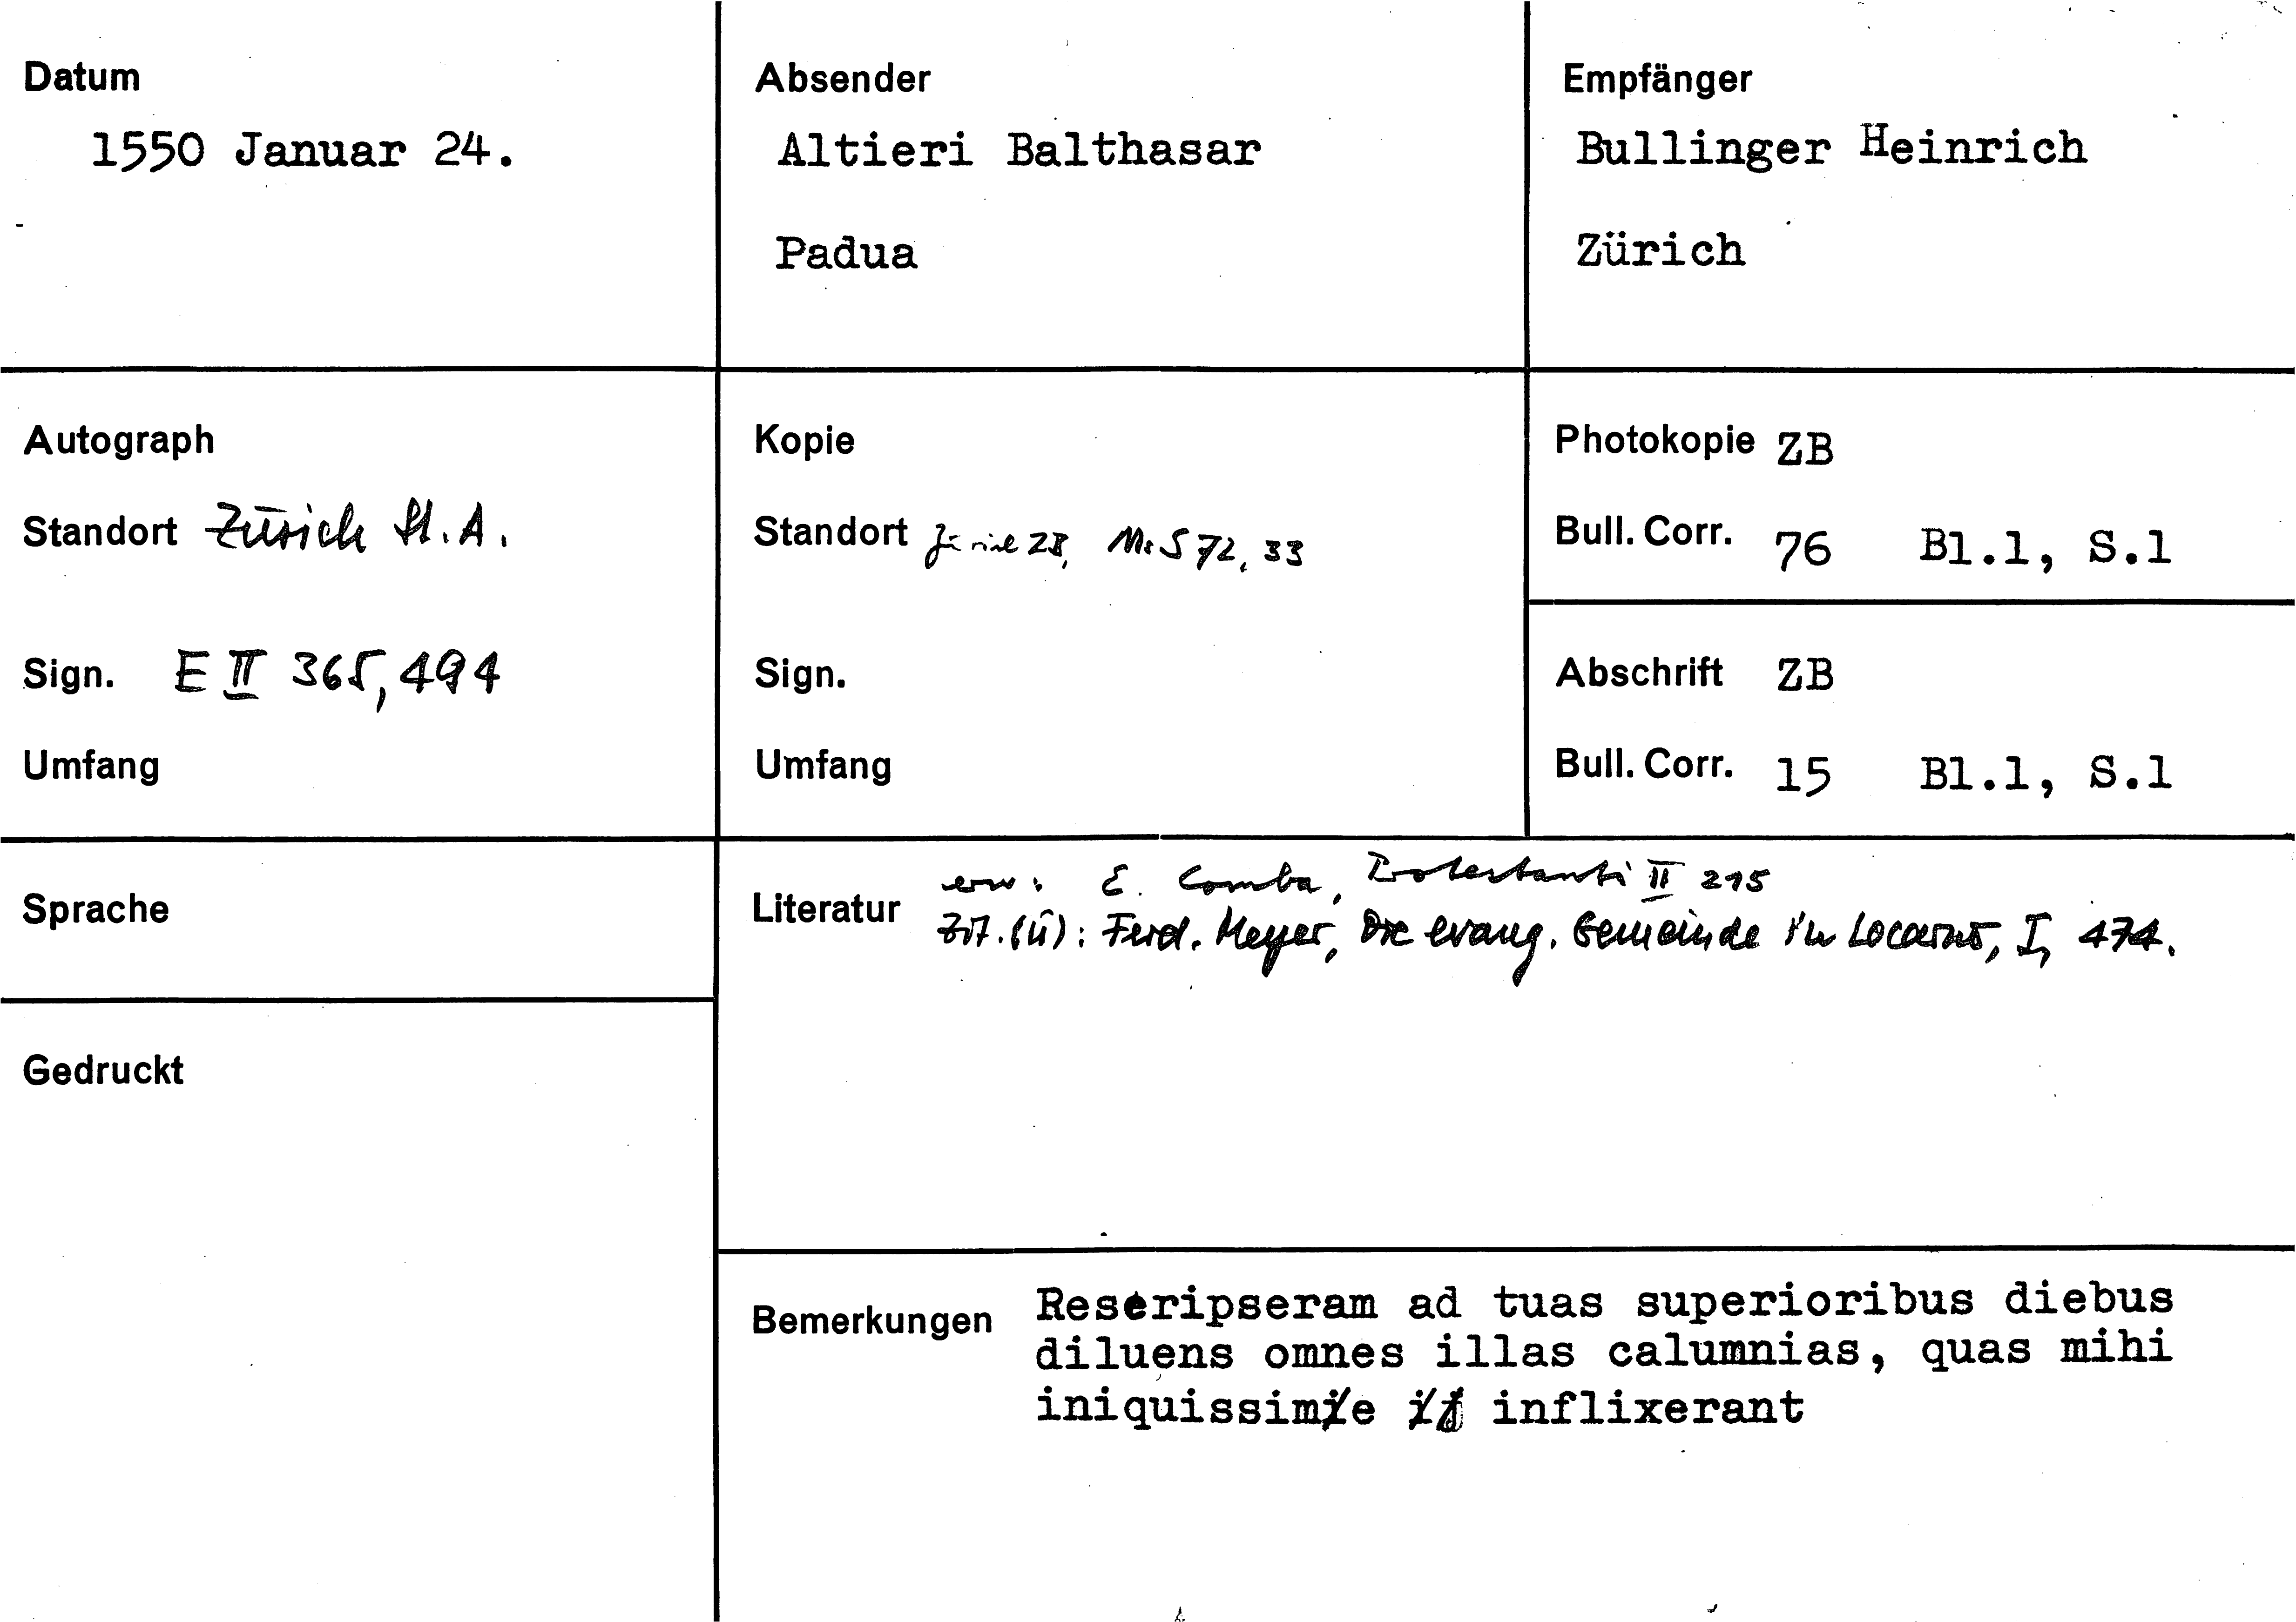 Datum
1550 Januar 24.
Absender
Altieri Balthasar
Padua
Empfänger
Bullinger Heinrich
Zürich
Autograph
Standort Zürich St.A.
Sign. E II 365,494
Umfang
Kopie
Standort Zürich ZB, Ms S 72, 33
Sign.
Umfang
Photokopie ZB
Bull. Corr. 76 Bl.1, S.1
Abschrift ZB
Bull. Corr. 15 Bl.1, S.1
Sprache
Gedruckt
Literatur
erw: E. Comba, Protestanti II 215
Zit.(ü): Ferd. Meyer, Die evang. Gemeinde in Locarno, I, 474.
Bemerkungen
Rescripseram ad tuas superioribus diebus
diluens omnes illas calumnias, quas mihi
iniquissime inflixerant